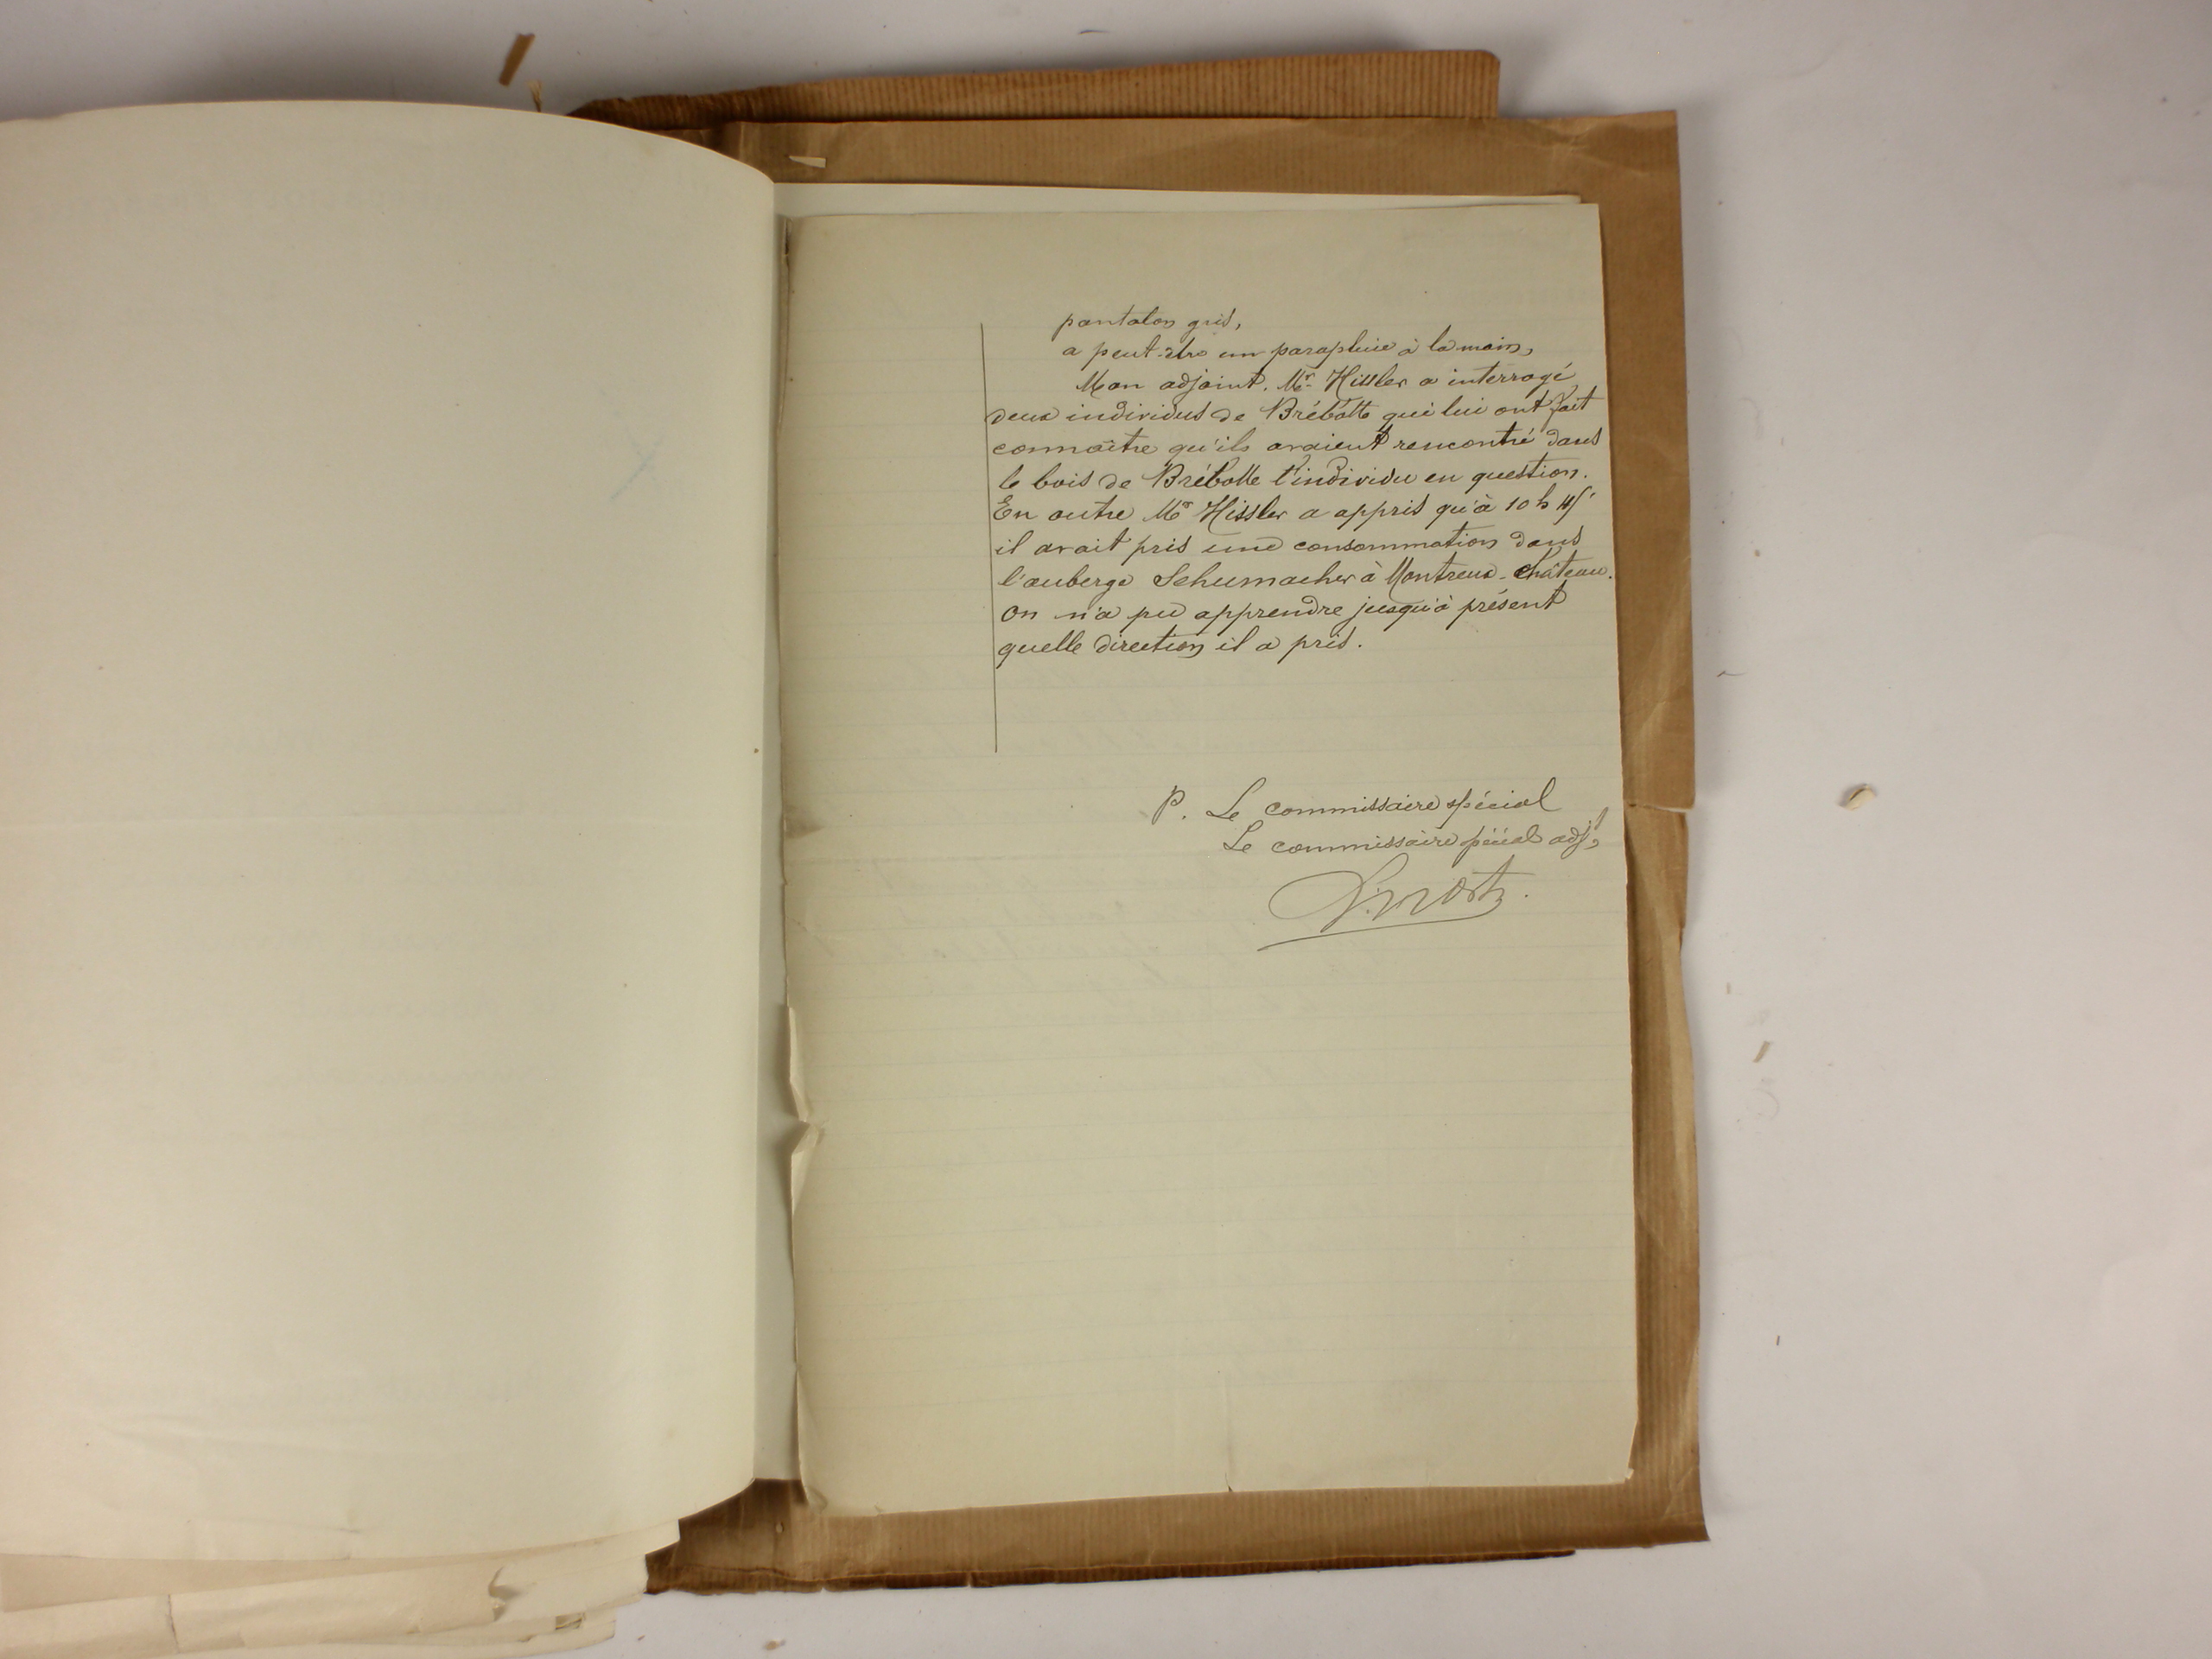 pantalon gris,
a peut-être un parapluie à la main,
Mon adjoint. Mr Hissler a interrogé
deux individus de Brébotte qui lui ont fait
connaître qu'ils avaient rencontré dans
le bois de Brébotte l'individu en question.
En outre Mr Hissler a appris qu'à 10 h
il avait pris une consommation dans
l'auberge Schumacher à Montreux-Château.
On n'a pu apprendre jusqu'à présent
quelle direction il a pris.
P. Le commissaire spécial
Le commissaire spécial adjt,